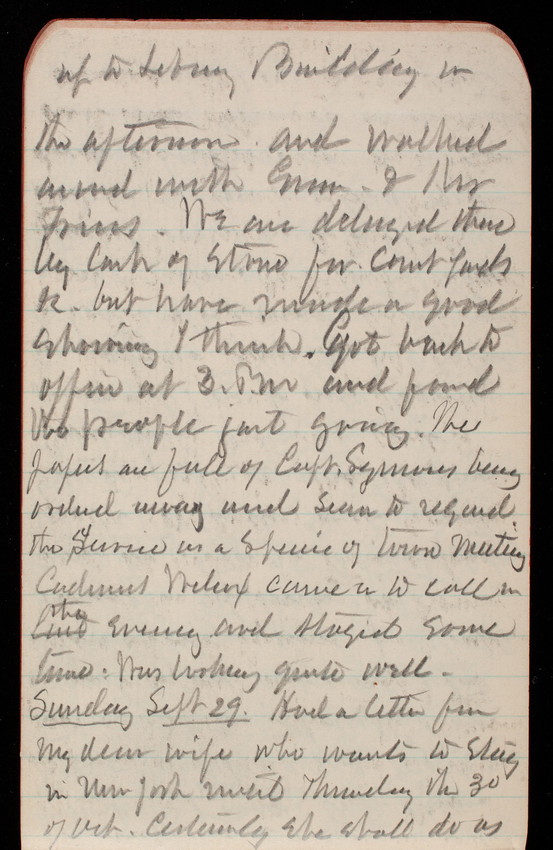 up to Library Building in
the afternoon and walked
around with Green & Mr
We are delayed there
by lack of Stone for Court yards
&c. but have made a good
showing I think. Got back to
office at 3. Pm and found
the people just going. The
papers are full of Capt. Symons being
ordered away and seem to regard
the Service as a Specie of town Meeting
Wilcox came in to call in
the evening and stayed some
time. Was looking quite well.
Sunday Sept 29. Had a letter from
my dear wife who wants to stay
in New York until Thursday the 30
of Oct. Certainly she shall do as